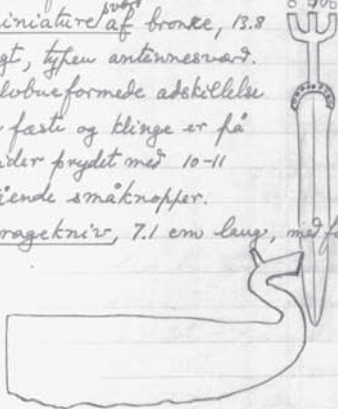 sværd
iniature af bronze, 13.8
gt, typen antennesværd.
lvbueformede adskillelse
fæste og klinge er på
ider prydet med 10-11
ående småknopper.
ragekniv, 7.1 cm lang, med f